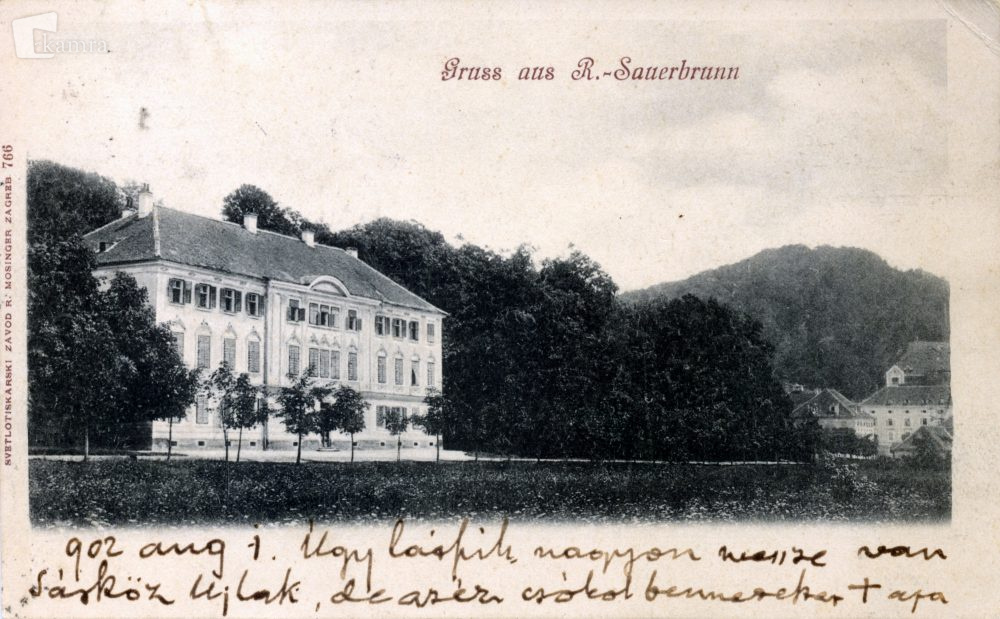 kamra
Gruss aus R.-Sauerbrunn
SVETLOTISKARSKI ZAVOD R. MOSINGER ZAGREB 766
902 aug 1. Úgy láspik, nagyon messze van
Sásköz Ujlak, de azér csókol benneteket + apa